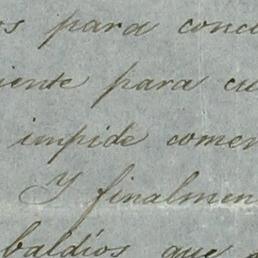 os para conc
iente para cu
impide comen
Y finalmen
baldíos que